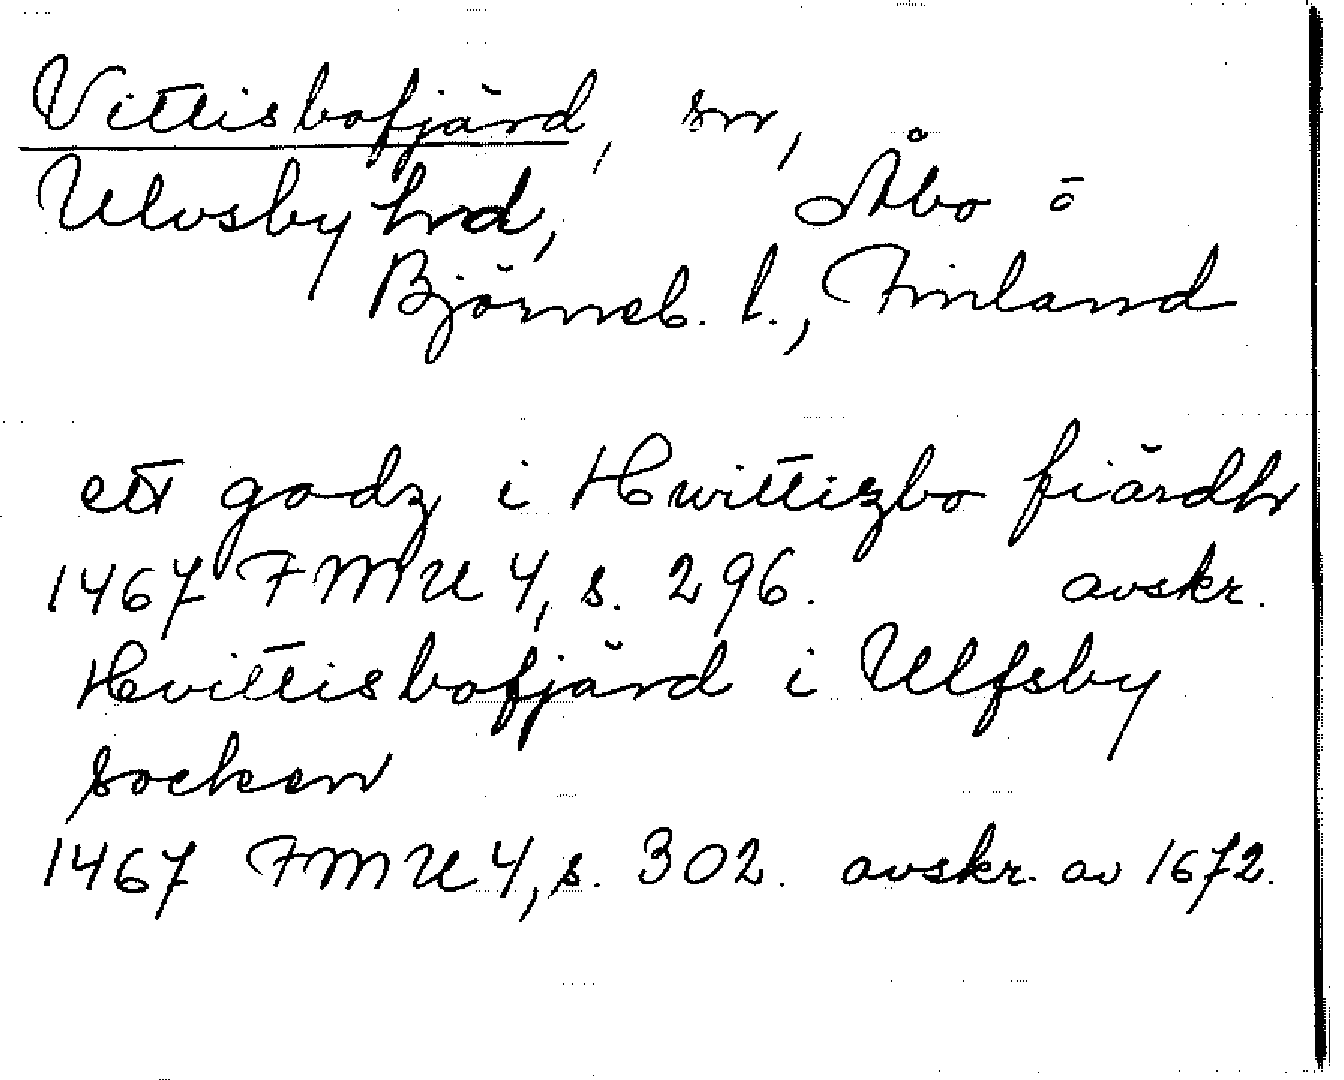 Vittisbofjärd, sn,
Ulvsby hrd, Åbo o
Björneb. l., Finland
ett godz i Hwittizbo fiärdh
1467 FMU 4, s. 296. avskr.
Hvittisbofjärd i Ulfsby
socken
1467 FMU 4, s. 302. avskr. av 1672.